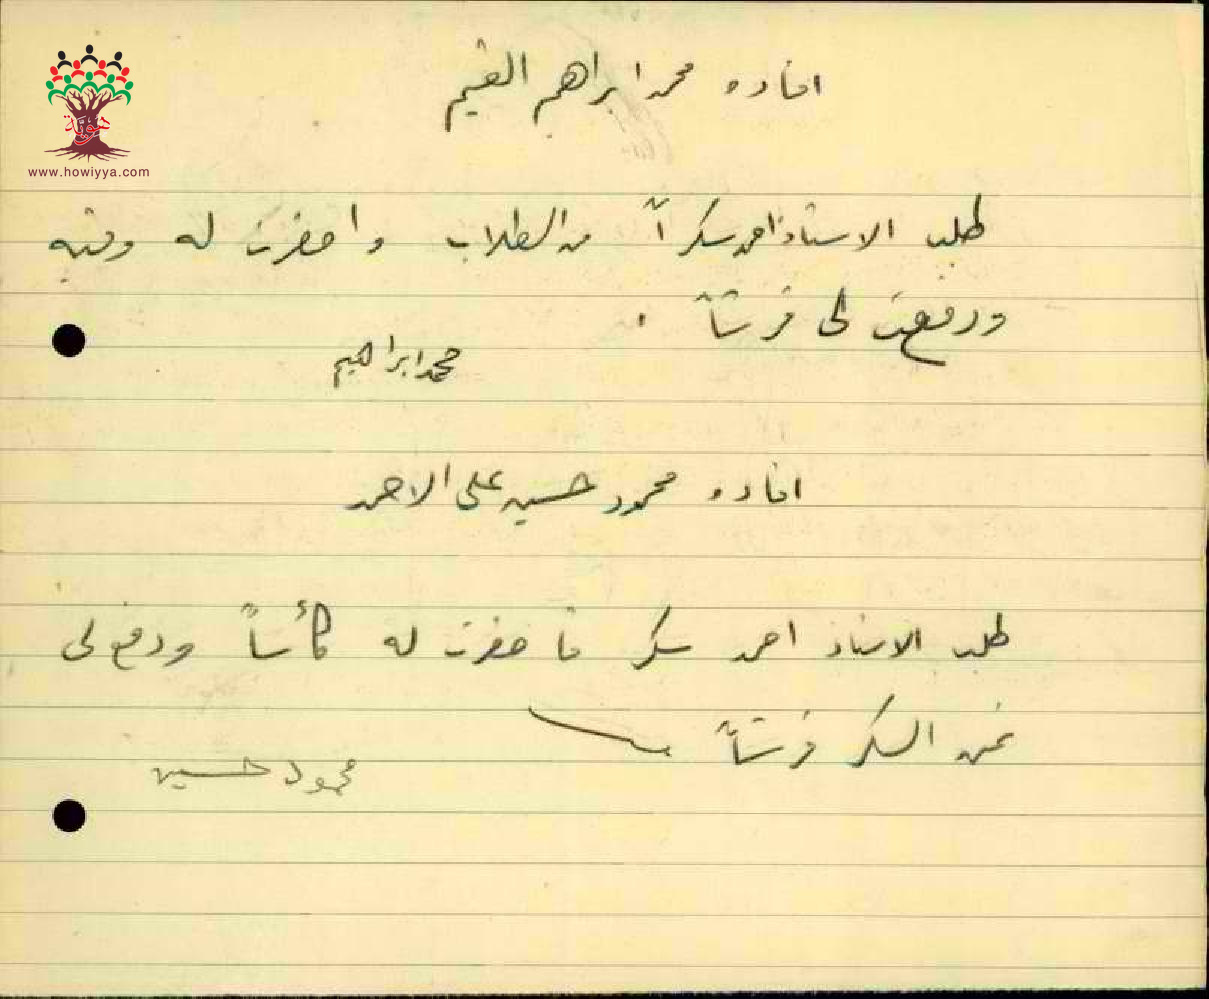 هوية
www.howiyya.com
افاده محمد ابراهيم القيم
طلب الاستاذ احمد سكراً من الطلاب واحضرت له وقيه
ودفعت لي قرشاً .
محمد ابراهيم
افاده محمود حسين علي الاحمد
طلب الاستاذ احمد سكر فاحضرت له كأساً ودفع لي
ثمن السكر قرشاً
محمود حسين